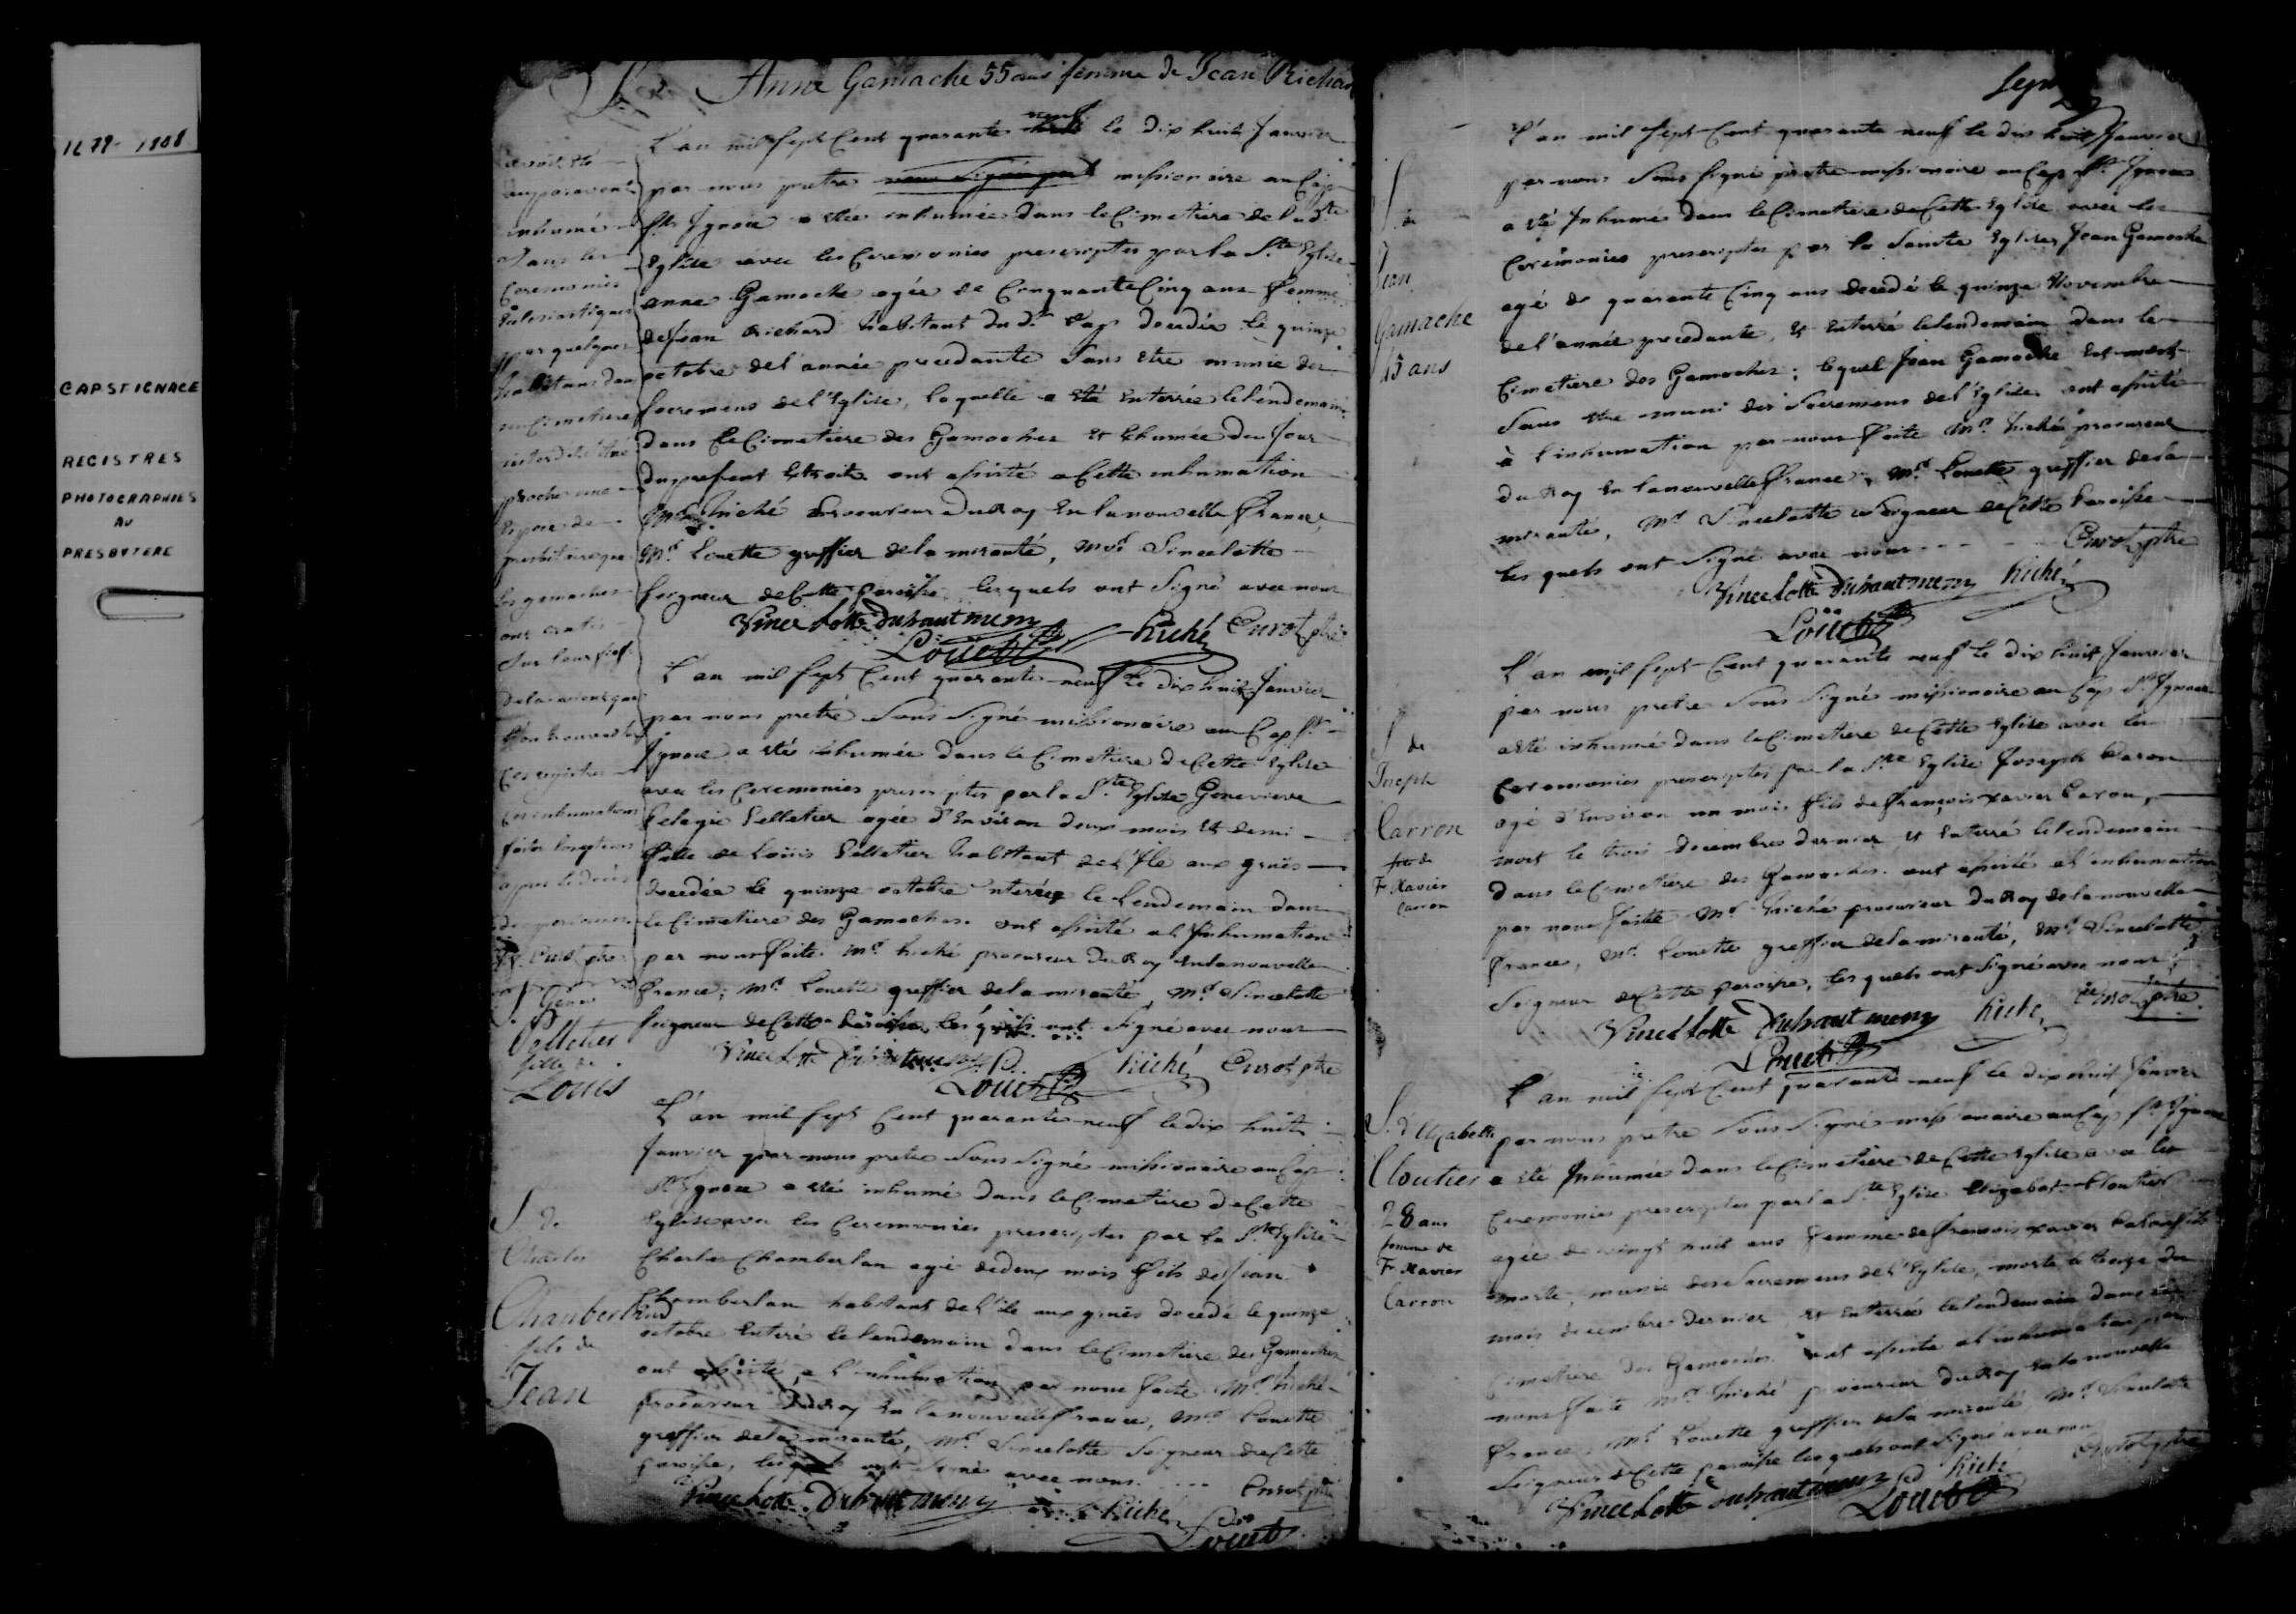 1679-1908
CAP ST IGNACE
REGISTRES
PHOTOGRAPHIÉS
AU
PRESBYTERE
S. de Anne Gamache 55 ans femme de Jean Richard
L'an mil sept Cent quarante neuf le dix huit Janvier
par nous pretre missionaire au Cap
St Ignace a étée inhumée dans le Cimetiere de ladte
Eglise avec les Ceremonies prescriptes par la Ste Eglise
anne Gamache agée de Cinquante Cinq ans femme
de Jean Richard habitant du dt Cap decedée le quinze
octobre de l'année precedante sans etre munie des
sacremens de l'Eglise, laquelle a été enterrée le lendemain
dans le Cimetiere des Gamaches et exhumée du jour
du present et droite ont assisté a Cette inhumation
Mr hiché Procureur du Roy en la nouvelle france,
Mr Louette greffier de la mirauté, Mr Vincelotte
seigneur de Cette paroisse lesquels ont signé avec nous
Vincelotte Duhautmeny
Louet hiché Curot ptre
avoit été
auparavant
inhumé
sans les
Ceremonies
Eclesiastiques
par quelques
habitans dans
un Cimetiere
interdit situé
proche une
espece de
presbitere que
les gamaches
ont
sur leur fief
L'an mil sept Cent quarante neuf le dix huit Janvier
par nous pretre sous signé missionaire au Cap St
Ignace a été inhumée dans le Cimetiere de Cette Eglise
avec les Ceremonies prescriptes par la Ste Eglise Genevieve
Pelagie Pelletier agée d'Environ deux mois et demi
fille de Louis Pelletier habitant de l'Ile aux grues
decedée le quinze octobre enterrée le lendemain dans
le Cimetiere des Gamaches. ont assisté a l'inhumation
par nous faite Mr hiché procureur du Roy en la nouvelle
france; Mr Louette greffier de la mirauté, Mr Vincelotte
seigneur de Cette Paroisse, lesquels ont signé avec nous
Vincelotte Duhautmeny hiché Curot ptre
Louet
Pelletier
fille de
Louis
L'an mil sept Cent quarante neuf le dix huit
Janvier par nous pretre sous signé missionaire au Cap
St Ignace a été inhumé dans le Cimetiere de Cette
Eglise avec les Ceremonies prescriptes par la Ste Eglise
Charles Chamberlan agé de deux mois fils de Jean
Chamberlan habitant de l'ile aux grues decedé le quinze
octobre enterré le lendemain dans le Cimetiere des Gamaches
ont assisté, a l'inhumation par nous faite Mr hiché
procureur du Roy en la nouvelle france, Mr Louette
greffier de la mirauté, Mr Vincelotte Seigneur de Cette
paroisse, lesquels ont signé avec nous. Curot ptre
Vincelotte Duhautmeny hiché
Louet
S. de
Charles
Chamberland
fils de
Jean
Sept
L'an mil sept Cent quarante neuf le dix huit Janvier
par nous sous signé pretre missionaire au Cap St Ignace
a été Inhumé dans le Cimetiere de Cette Eglise avec les
Ceremonies prescriptes par la Sainte Eglise Jean Gamache
agé de quarante Cinq ans decedé le quinze Novembre
de l'année precedante, et enterré le lendemain dans le
Cimetiere des Gamaches; lequel Jean Gamache est mort
sans etre muni des sacremens de l'Eglise. ont assisté
à l'inhumation par nous faite Mr hiché procureur
du Roy en la nouvelle france; Mr Louette greffier de la
mirauté, Mr Vincelotte Seigneur de Cette Paroisse
les quels ont signé avec nous Curot ptre
Vincelotte Duhautmeny hiché
Louet
S. de
Jean
Gamache
45 ans
L'an mil sept Cent quarante neuf le dix huit Janvier
par nous pretre sous signé missionaire au Cap St Ignace
a été inhumé dans le Cimetiere de Cette Eglise avec les
Ceremonies prescriptes par la Ste Eglise Joseph Caron
agé d'Environ un mois fils de françois xavier Caron,
mort le trois decembre dernier et enterré le lendemain
dans le Cimetiere des Gamaches. ont assisté a l'inhumation
par nous faite Mr hiché procureur du Roy de la nouvelle
france, Mr Louette greffier de la mirauté, Mr Vincelotte
Seigneur de Cette paroisse, les quels ont signé avec nous
Vincelotte Duhautmeny hiché Curot ptre
Louet
S de
Joseph
Carron
fils de
F. Xavier
Carron
L'an mil sept Cent quarante neuf le dix huit Janvier
par nous pretre sous signé missionaire au Cap St Ignace
a été Inhumée dans le Cimetiere de Cette Eglise avec les
Ceremonies prescriptes par la Ste Eglise Elizabet Cloutier
agée de vingt huit ans femme de francois xavier Caron
morte, munie des Sacremens de l'Eglise, morte le treize du
mois decembre dernier et enterrée le lendemain dans le
Cimetiere des Gamaches. ont assisté a l'inhumation par
nous faite Mr hiché procureur du Roy en la nouvelle
france, Mr Louette greffier de la mirauté Mr Vincelotte
Seigneur de Cette paroisse les quels ont signé avec nous
Vincelotte Duhautmeny hiché Curot ptre
Louet
S. d'Elizabeth
Cloutier
28 ans
femme de
F. Xavier
Carron